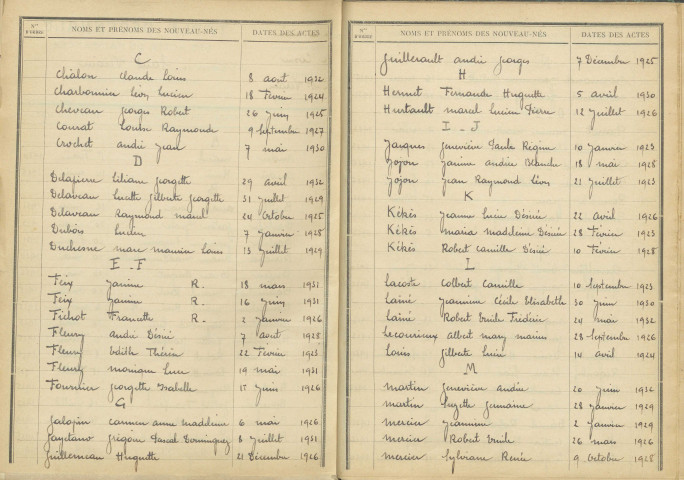 Nos D'ORDRE NOMS ET PRÉNOMS DES NOUVEAU-NÉS DATES DES ACTES
C
Châlon Claude Louis 8 août 1932
Charbonnier Léon Lucien 18 Février 1924
Cheveau Georges Robert 26 Juin 1925
Courat Louise Raymonde 9 Septembre 1927
Crochet André Jean 7 mai 1930
D
Delapierre Liliane Georgette 29 avril 1932
Delaveau Lucette Gilberte Georgette 31 Juillet 1929
Delaveau Raymond Marcel 24 Octobre 1925
Dubois Lucien 7 Janvier 1928
Duchesne Marc Maurice Louis 13 Juillet 1929
E - F
Feix Janine R. 18 mars 1931
Feix Janine R. 16 Juin 1931
Fichot Francette R. 2 Janvier 1926
Fleury André Désiré 7 août 1928
Fleury Edith Thérèse 22 Février 1923
Fleury Monique Luce 19 mai 1931
Fournier Georgette Isabelle 15 Juin 1926
G
Galopin Carmen Anne Madeleine 6 mai 1926
Gaydano Grégoire Pascal Dominique 8 Juillet 1931
Guillemeau Huguette 21 Décembre 1926
Nos D'ORDRE NOMS ET PRÉNOMS DES NOUVEAU-NÉS DATES DES ACTES
Guillerault André Georges 7 Décembre 1925
H
Hermet Fernande Huguette 5 avril 1930
Hurtault Marcel Lucien Pierre 12 Juillet 1926
I - J
Jacques Geneviève Paule Régine 10 Janvier 1923
Jojon Janine Andrée Blanche 18 mai 1928
Jojon Jean Raymond Léon 21 Juillet 1923
K
Kékès Jeanne Lucie Désirée 22 avril 1926
Kékès Maria Madeleine Désirée 28 Février 1923
Kékès Robert Camille Désiré 10 Février 1928
L
Lacoste Colbert Camille 10 Septembre 1923
Lainé Jeannine Cécile Elisabeth 30 Juin 1930
Lainé Robert Emile Frédéric 24 mai 1932
Lecouvreux Albert Mary Marius 28 Septembre 1926
Louis Gilberte Lucie 14 avril 1924
M
Martin Geneviève Andrée 20 Juin 1926
Martin Suzette Germaine 28 Janvier 1929
Mercier Jeannine 2 Janvier 1929
Mercier Robert Emile 26 mars 1926
Mercier Sylviane Renée 9 Octobre 1928